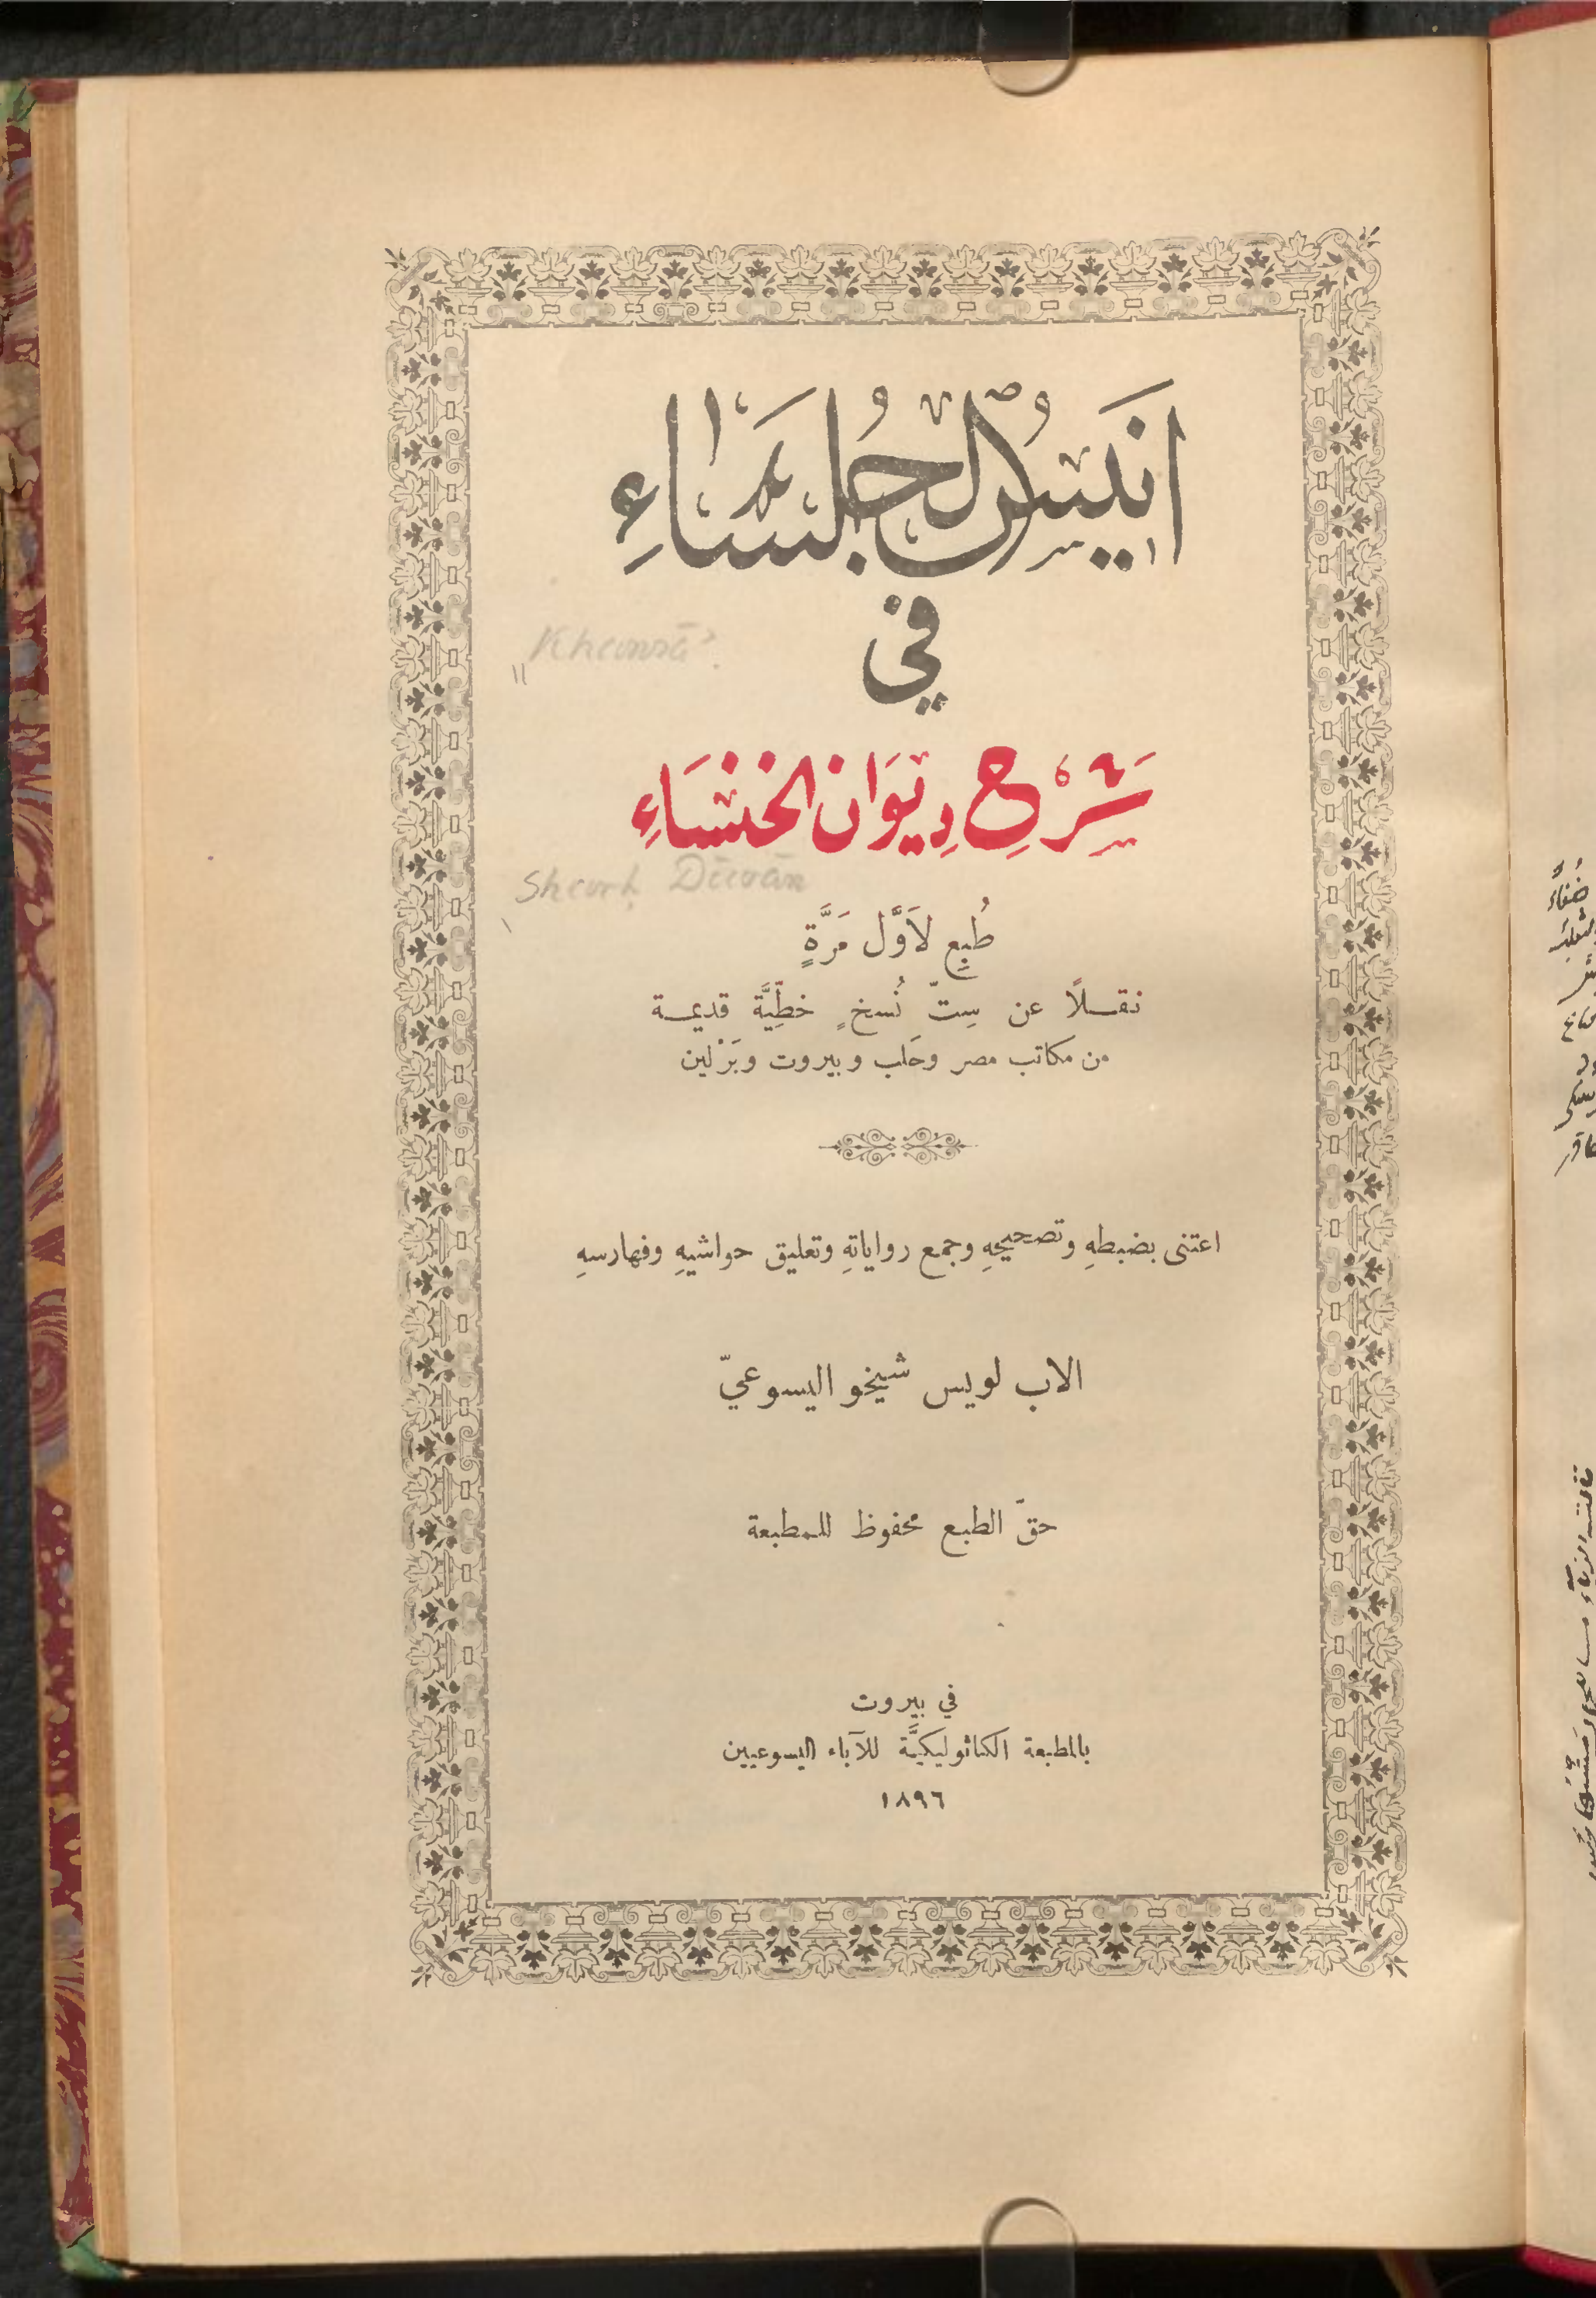 اَنيسُ الجُلَسَاءِ
في
Khansā'
شَرْح دِيوَان الخَنْسَاءِ
Sharḥ Dīwān
طُبِع لأَوَّل مَرَّةٍ
نقلًا عن سِتّ نُسخٍ خطِّيَّة قديمة
من مكاتب مصر وحَلب وبيروت وبَرْلين
اعتنى بضبطهِ وتصحيحهِ وجمع رواياتهِ وتعليق حواشيهِ وفهارسهِ
الاب لويس شيخو اليسوعيّ
حقّ الطبع محفوظ للمطبعة
في بيروت
بالمطبعة الكاثوليكيَّة للآباء اليسوعيين
١٨٩٦